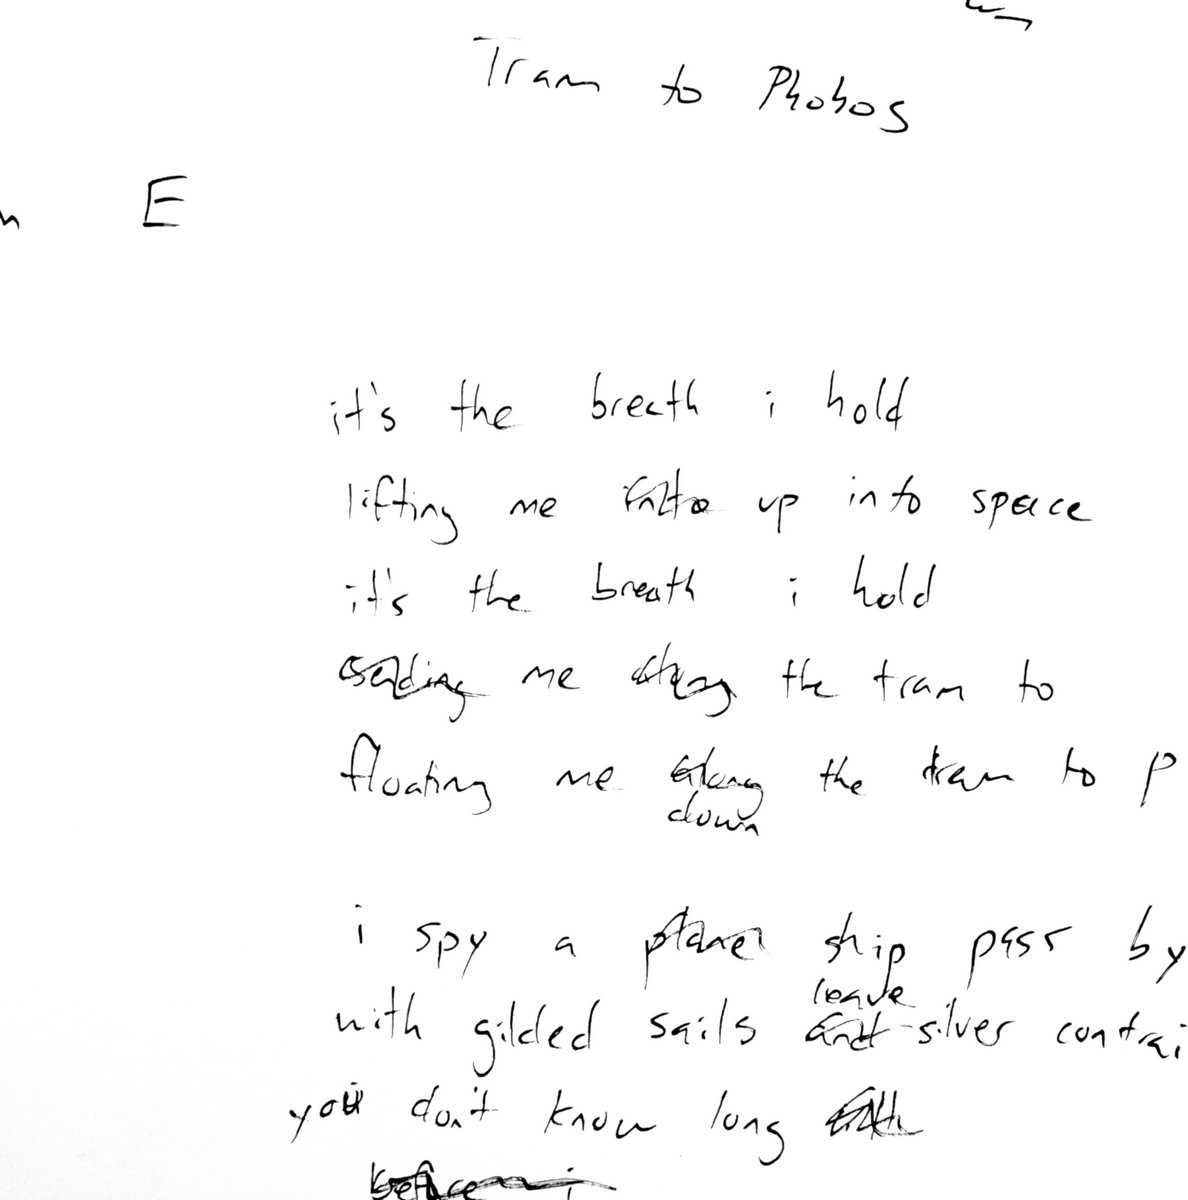 Tram to Phobos
E
it's the breath i hold
lifting me into up into space
it's the breath i hold
sending me along the tram to
floating me along the tram to P
down
i spy a planet ship pass by
leave
with gilded sails and silver contrai
you don't know long
before i